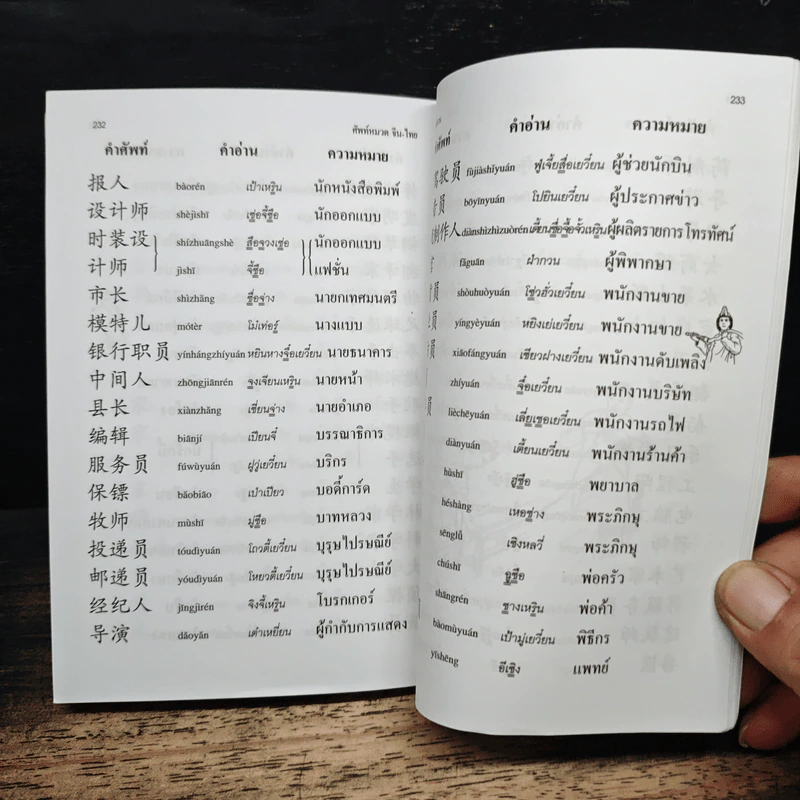 232
ศัพท์หมวด จีน-ไทย
คำศัพท์ คำอ่าน ความหมาย
报人 bàorén เป้าเหริน นักหนังสือพิมพ์
设计师 shèjìshī เซ่อจี้ซือ นักออกแบบ
时装设 shízhuāngshè สือจวงเซ่อ นักออกแบบ
计师 jìshī จี้ซือ แฟชั่น
市长 shìzhǎng ซื่อจ่าง นายกเทศมนตรี
模特儿 mótèr โม๋เท่อร์ นางแบบ
银行职员 yínhángzhíyuán หยินหางจื๋อเยวี๋ยน นายธนาคาร
中间人 zhōngjiānrén จงเจียนเหริน นายหน้า
县长 xiànzhǎng เซี่ยนจ่าง นายอำเภอ
编辑 biānjí เปียนจี๋ บรรณาธิการ
服务员 fúwùyuán ฝูวู่เยวี๋ยน บริกร
保镖 bǎobiāo เป่าเปียว บอดี้การ์ด
牧师 mùshī มู่ซือ บาทหลวง
投递员 tóudìyuán โถวตี้เยวี๋ยน บุรุษไปรษณีย์
邮递员 yóudìyuán โหยวตี้เยวี๋ยน บุรุษไปรษณีย์
经纪人 jīngjìrén จิงจี้เหริน โบรกเกอร์
导演 dǎoyǎn เต๋าเหยี่ยน ผู้กำกับการแสดง
233
คำอ่าน ความหมาย
驶员 fùjiàshǐyuán ฟู่เจี้ยสื่อเยวี๋ยน ผู้ช่วยนักบิน
员 bōyīnyuán โปยินเยวี๋ยน ผู้ประกาศข่าว
制作人 diànshìzhìzuòrén เตี้ยนซื่อจื้อจั้วเหริน ผู้ผลิตรายการโทรทัศน์
fǎguān ฝ่ากวน ผู้พิพากษา
员 shòuhuòyuán โซ่วฮั่วเยวี๋ยน พนักงานขาย
员 yíngyèyuán หยิงเย่เยวี๋ยน พนักงานขาย
员 xiāofángyuán เซียวฝางเยวี๋ยน พนักงานดับเพลิง
zhíyuán จื๋อเยวี๋ยน พนักงานบริษัท
员 lièchēyuán เลี่ยเชอเยวี๋ยน พนักงานรถไฟ
diànyuán เตี้ยนเยวี๋ยน พนักงานร้านค้า
hùshì ฮู่ซื่อ พยาบาล
héshàng เหอซ่าง พระภิกษุ
sēnglǚ เซิงหลวี่ พระภิกษุ
chúshī ฉูซือ พ่อครัว
shāngrén ซางเหริน พ่อค้า
bàomùyuán เป้ามู่เยวี๋ยน พิธีกร
yīshēng อีเซิง แพทย์